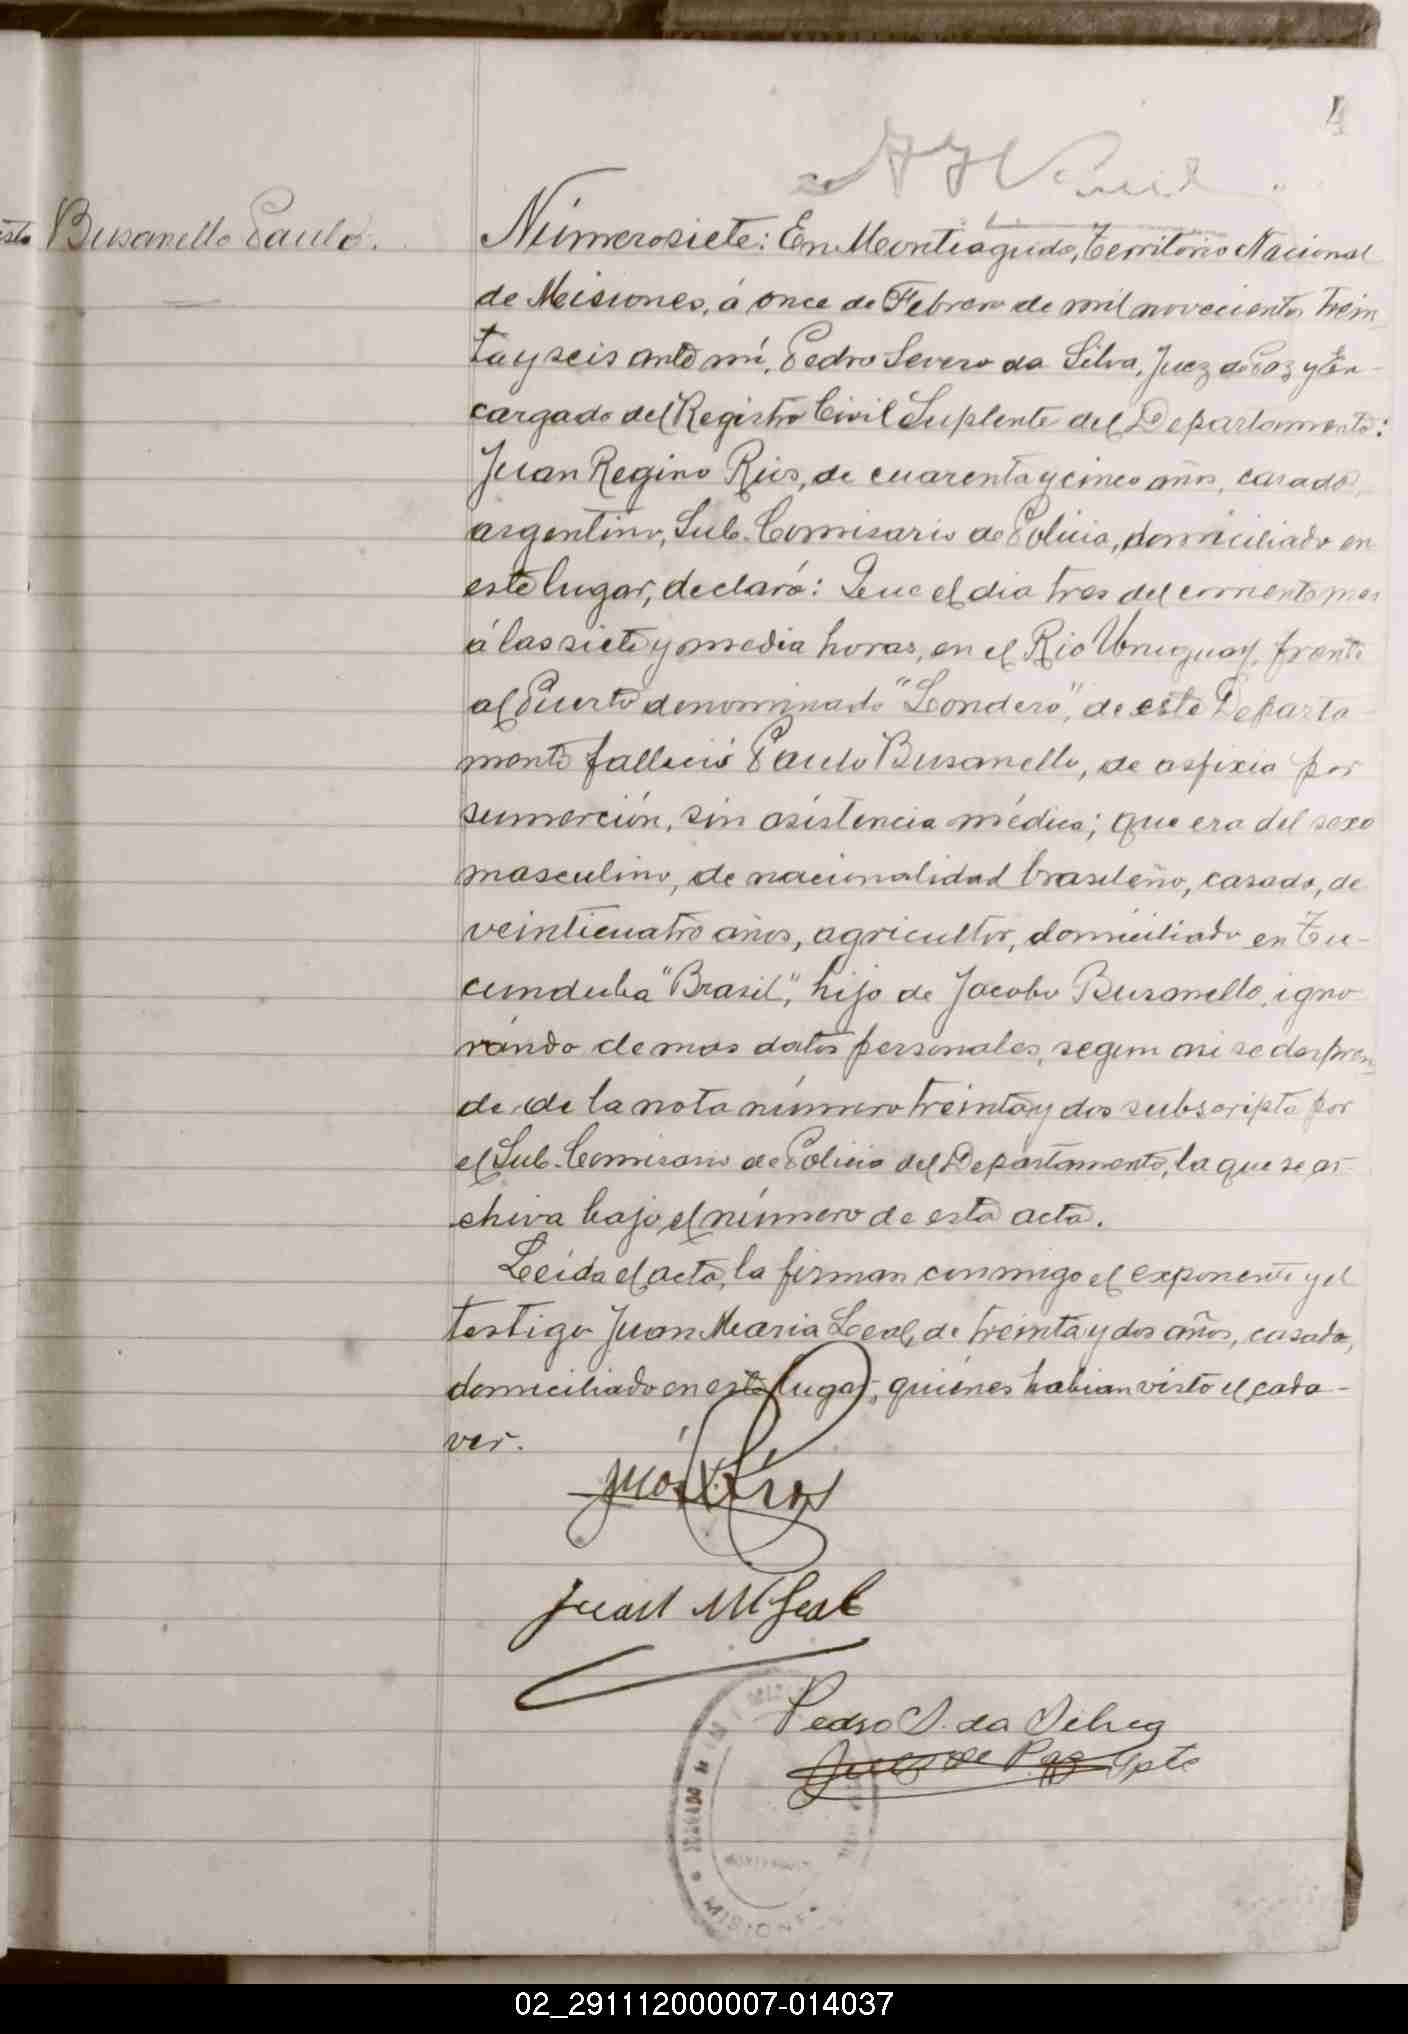 4
Busanello Paulo.
Número siete: En Monteagudo, Territorio Nacional
de Misiones, á once de Febrero de mil novecientos trein
ta y seis ante mí, Pedro Severo da Silva, Juez de Paz y En-
cargado del Registro Civil Suplente del Departamento:
Juan Regino Rios, de cuarenta y cinco años, casado,
argentino, Sub-Comisario de Policia, domiciliado en
este lugar, declaró: Que el dia tres del corriente mes
á las siete y media horas, en el Rio Uruguay, frente
al Puerto denominado "Londero", de este Departa-
mento falleció Paulo Busanello, de asfixia por
sumerción, sin asistencia médica; que era del sexo
masculino, de nacionalidad brasileño, casado, de
veinticuatro años, agricultor, domiciliado en Tu-
cunduba "Brasil", hijo de Jacobo Busanello, igno
rándo demas datos personales, segun asi se despren
de de la nota número treinta y dos subscripta por
el Sub-Comisario de Policia del Departamento, la que se ar-
chiva bajo el número de esta acta.
Leida el acta, la firman conmigo el exponente y el
testigo Juan Maria Leal, de treinta y dos años, casado,
domiciliado en este lugar; quiénes habian visto el cada-
ver.
Juan R. Rios
Juan M Leal
Pedro S. da Silva
Juez de Paz Spte
JUZGADO DE PAZ
MISIONES
02_291112000007-014037